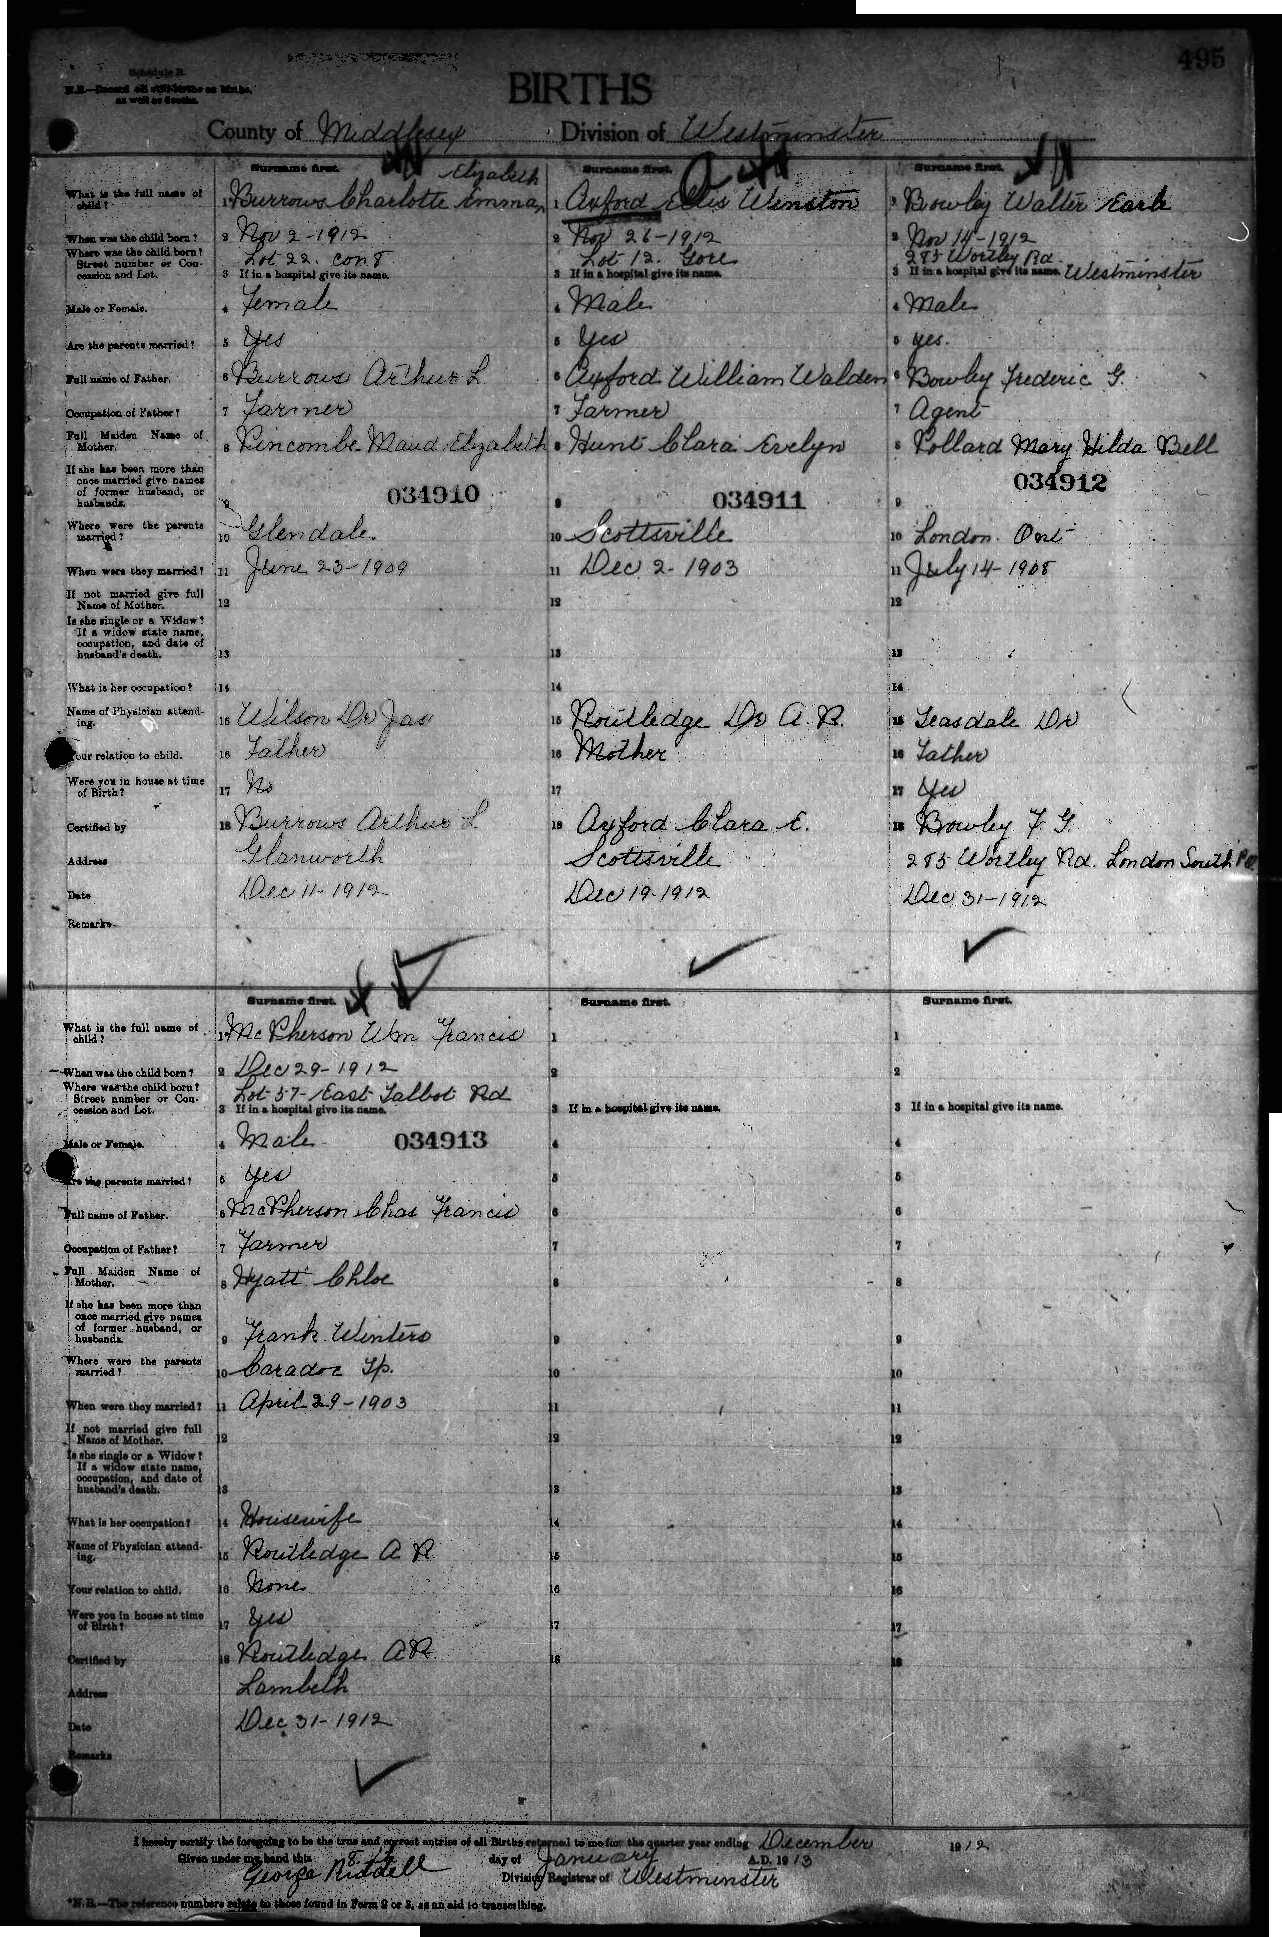 495
Schedule B.
N.B.—Record all still-births as births, as well as deaths.
BIRTHS
County of Middlesex Division of Westminster
Surname first. Surname first. Surname first.
What is the full name of child?
1 Burrows Charlotte Emma Elizabeth
1 Axford Ellis Winston
1 Bowley Walter Earle
When was the child born?
2 Nov 2-1912
2 Nov 26-1912
2 Nov 14-1912
Where was the child born? Street number or Concession and Lot.
Lot 22. con 8
Lot 12. Gore
285 Wortley Rd
3 If in a hospital give its name.
3 If in a hospital give its name.
3 If in a hospital give its name. Westminster
Male or Female.
4 Female
4 Male
4 Male
Are the parents married?
5 Yes
5 Yes
5 yes.
Full name of Father.
6 Burrows Arthur L
6 Axford William Walden
6 Bowley Frederic G.
Occupation of Father?
7 Farmer
7 Farmer
7 Agent
Full Maiden Name of Mother.
8 Pincombe Maud Elizabeth
8 Hunt Clara Evelyn
8 Pollard Mary Hilda Bell
If she has been more than once married give names of former husband, or husbands.
9 034910
9 034911
9 034912
Where were the parents married?
10 Glendale.
10 Scottsville
10 London. Ont
When were they married?
11 June 23-1909
11 Dec 2-1903
11 July 14-1908
If not married give full Name of Mother.
12
12
12
Is she single or a Widow? If a widow state name, occupation, and date of husband's death.
13
13
13
What is her occupation?
14
14
14
Name of Physician attending.
15 Wilson Dr Jas
15 Routledge Dr A. R.
15 Teasdale Dr
Your relation to child.
16 Father
16 Mother
16 Father
Were you in house at time of Birth?
17 No
17
17 Yes
Certified by
18 Burrows Arthur L
18 Axford Clara E.
18 Bowley F. G.
Address
Glanworth
Scottsville
285 Wortley Rd. London South P.O
Date
Dec 11-1912
Dec 19-1912
Dec 31-1912
Remarks
Surname first. Surname first. Surname first.
What is the full name of child?
1 McPherson Wm Francis
1
1
When was the child born?
2 Dec 29-1912
2
2
Where was the child born? Street number or Concession and Lot.
Lot 57-East Talbot Rd
3 If in a hospital give its name.
3 If in a hospital give its name.
3 If in a hospital give its name.
Male or Female.
4 Male 034913
4
4
Are the parents married?
5 Yes
5
5
Full name of Father.
6 McPherson Chas Francis
6
6
Occupation of Father?
7 Farmer
7
7
Full Maiden Name of Mother.
8 Hyatt Chloe
8
8
If she has been more than once married give names of former husband, or husbands.
9 Frank Winters
9
9
Where were the parents married?
10 Caradoc Tp.
10
10
When were they married?
11 April 29-1903
11
11
If not married give full Name of Mother.
12
12
12
Is she single or a Widow? If a widow state name, occupation, and date of husband's death.
13
13
13
What is her occupation?
14 Housewife
14
14
Name of Physician attending.
15 Routledge A R
15
15
Your relation to child.
16 None
16
16
Were you in house at time of Birth?
17 Yes
17
17
Certified by
18 Routledge A R
18
18
Address
Lambeth
Date
Dec 31-1912
Remarks
I hereby certify the foregoing to be the true and correct entries of all Births returned to me for the quarter year ending December 1912
Given under my hand this 8th day of January A.D. 1913
George Riddell Division Registrar of Westminster
*N.B.—The reference numbers relate to those found in Form 2 or 3, as an aid to transcribing.